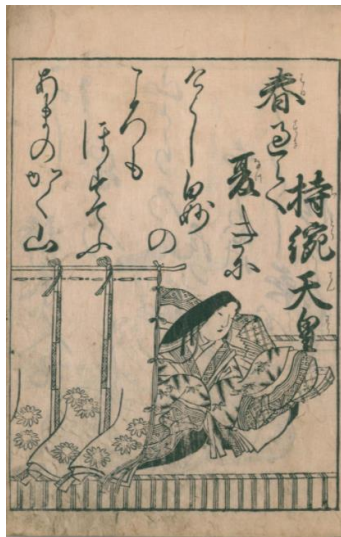 持統天皇
春過て
夏きに
けらし白妙
の
ころも
ほすてふ
あまのがく山